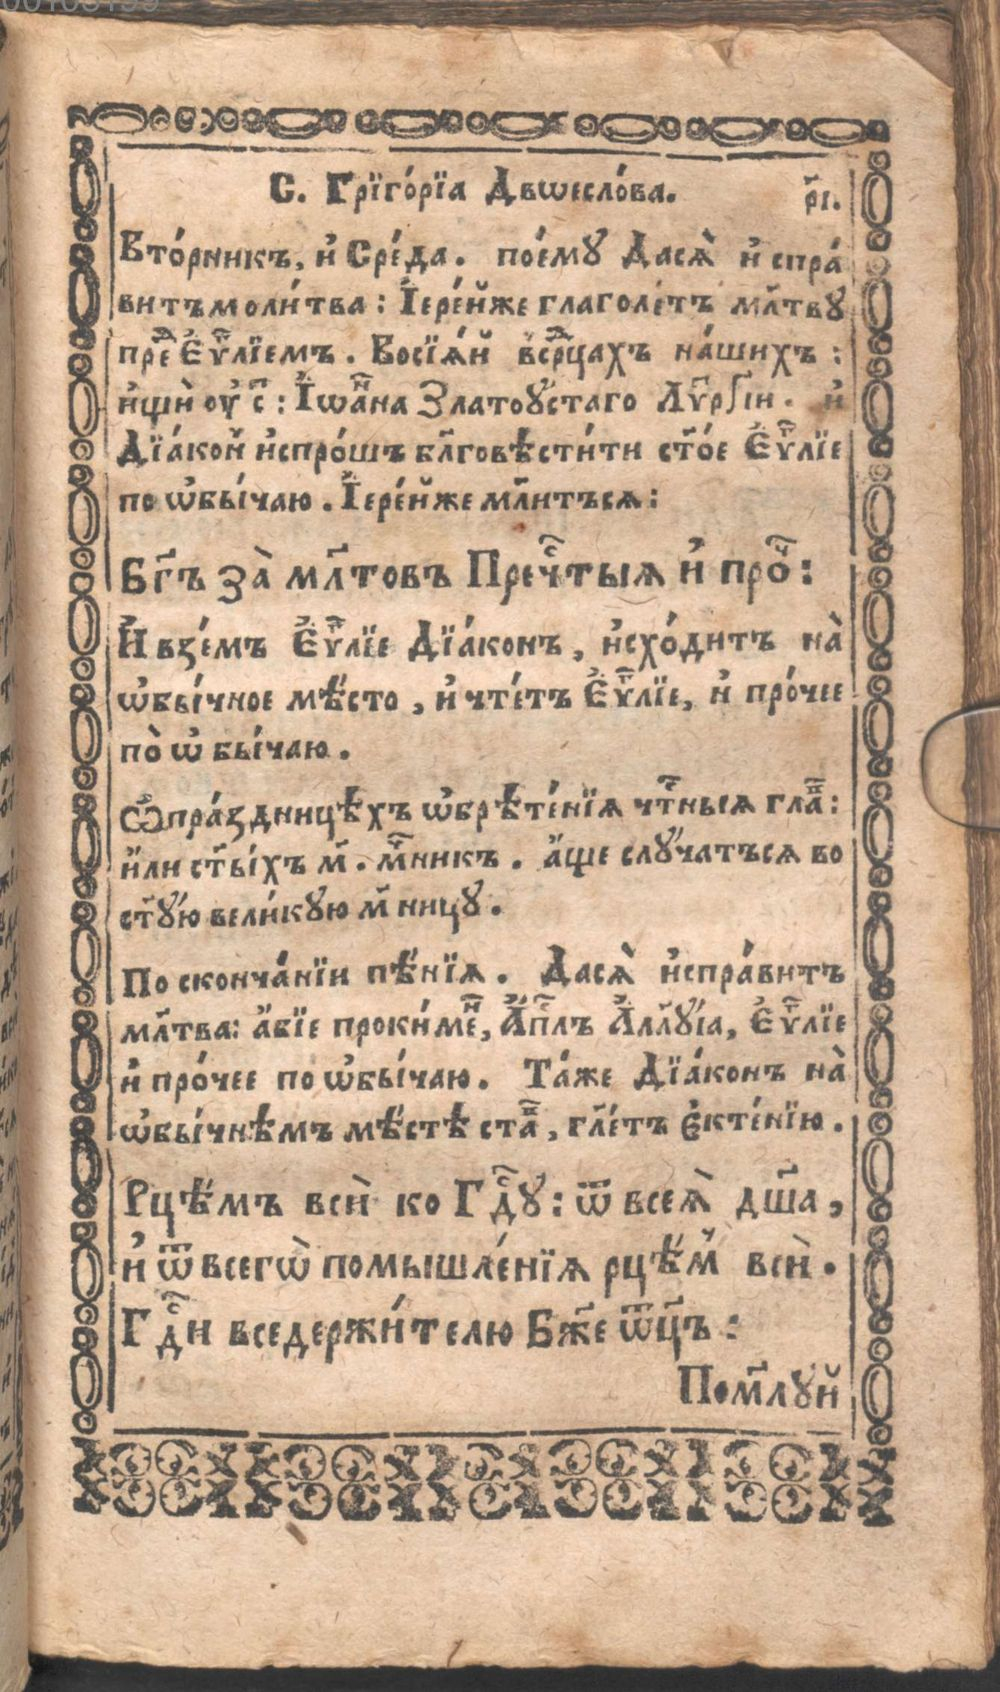 00105159
С. Грїго́рїа Двѡесло́ва. р҃і.
Вто́рникъ, и҆ Сре́да. пое́мꙋ Дасѧ̀ и҆спра́
витъ моли́тва: І҆ере́йже глаголетъ мл҃твꙋ
преⷣ Е҆ѵⷢ҇лїемъ. Восїѧ́й всрⷣцахъ на́шихъ:
ищѝ оу҆ с҃: І҆ѡⷩ҇а́на Златоꙋ́стаго Лѵⷢ҇рⸯїи. и҆
Дїа́кон̾ и҆спро́шъ бл҃говѣсти́ти ст҃о́е Е҆ѵⷢ҇лїе
по ѡ҆бы́чаю. І҆ере́йже мл҃итъсѧ:
Бг҃ъ за̀ мл҃товъ Пречⷭ҇тыѧ и҆ проⷱ҇:
И҆ взе́мъ Е҆ѵⷢ҇лїе Дїа́конъ, и҆схо́дитъ на̀
ѡ҆бы́чное мѣ́сто, и҆ чте́тъ Е҆ѵⷢ҇лїе, и҆ про́чее
по̀ ѡ҆бы́чаю.
Ѡ҆пра́здницѣхъ ѡ҆брѣте́нїѧ чтⷭ҇ныѧ глаⷡ҇:
и҆́ли ст҃ы́хъ м҃. мⷱ҇никъ. а҆́ще слꙋ́чатъсѧ во
ст҃ꙋ́ю вели́кꙋю м҃ницꙋ.
По сконча́нїи пѣ́нїѧ. Дасѧ̀ и҆спра́витъ
мл҃тва: а҆́бїе проки́меⷩ҇, А҆пⷭ҇лъ А҆лл҃ꙋ́їа, Е҆ѵⷢ҇лїе
и҆ про́чее по ѡ҆бы́чаю. Та́же Дїа́конъ на̀
ѡ҆бы́чнѣмъ мѣ́стѣ стаⷡ҇, гл҃етъ е҆ктенїю.
Рцѣ́мъ всѝ ко Гдⷭ҇ꙋ: ѿ всеѧ̀ дш҃а,
и҆ ѿ всегѡ̀ помышле́нїѧ рцѣ́м̾ всѝ.
Гдⷭ҇и вседержи́телю Бж҃е ѿц҃ъ:
Пом҃лꙋй